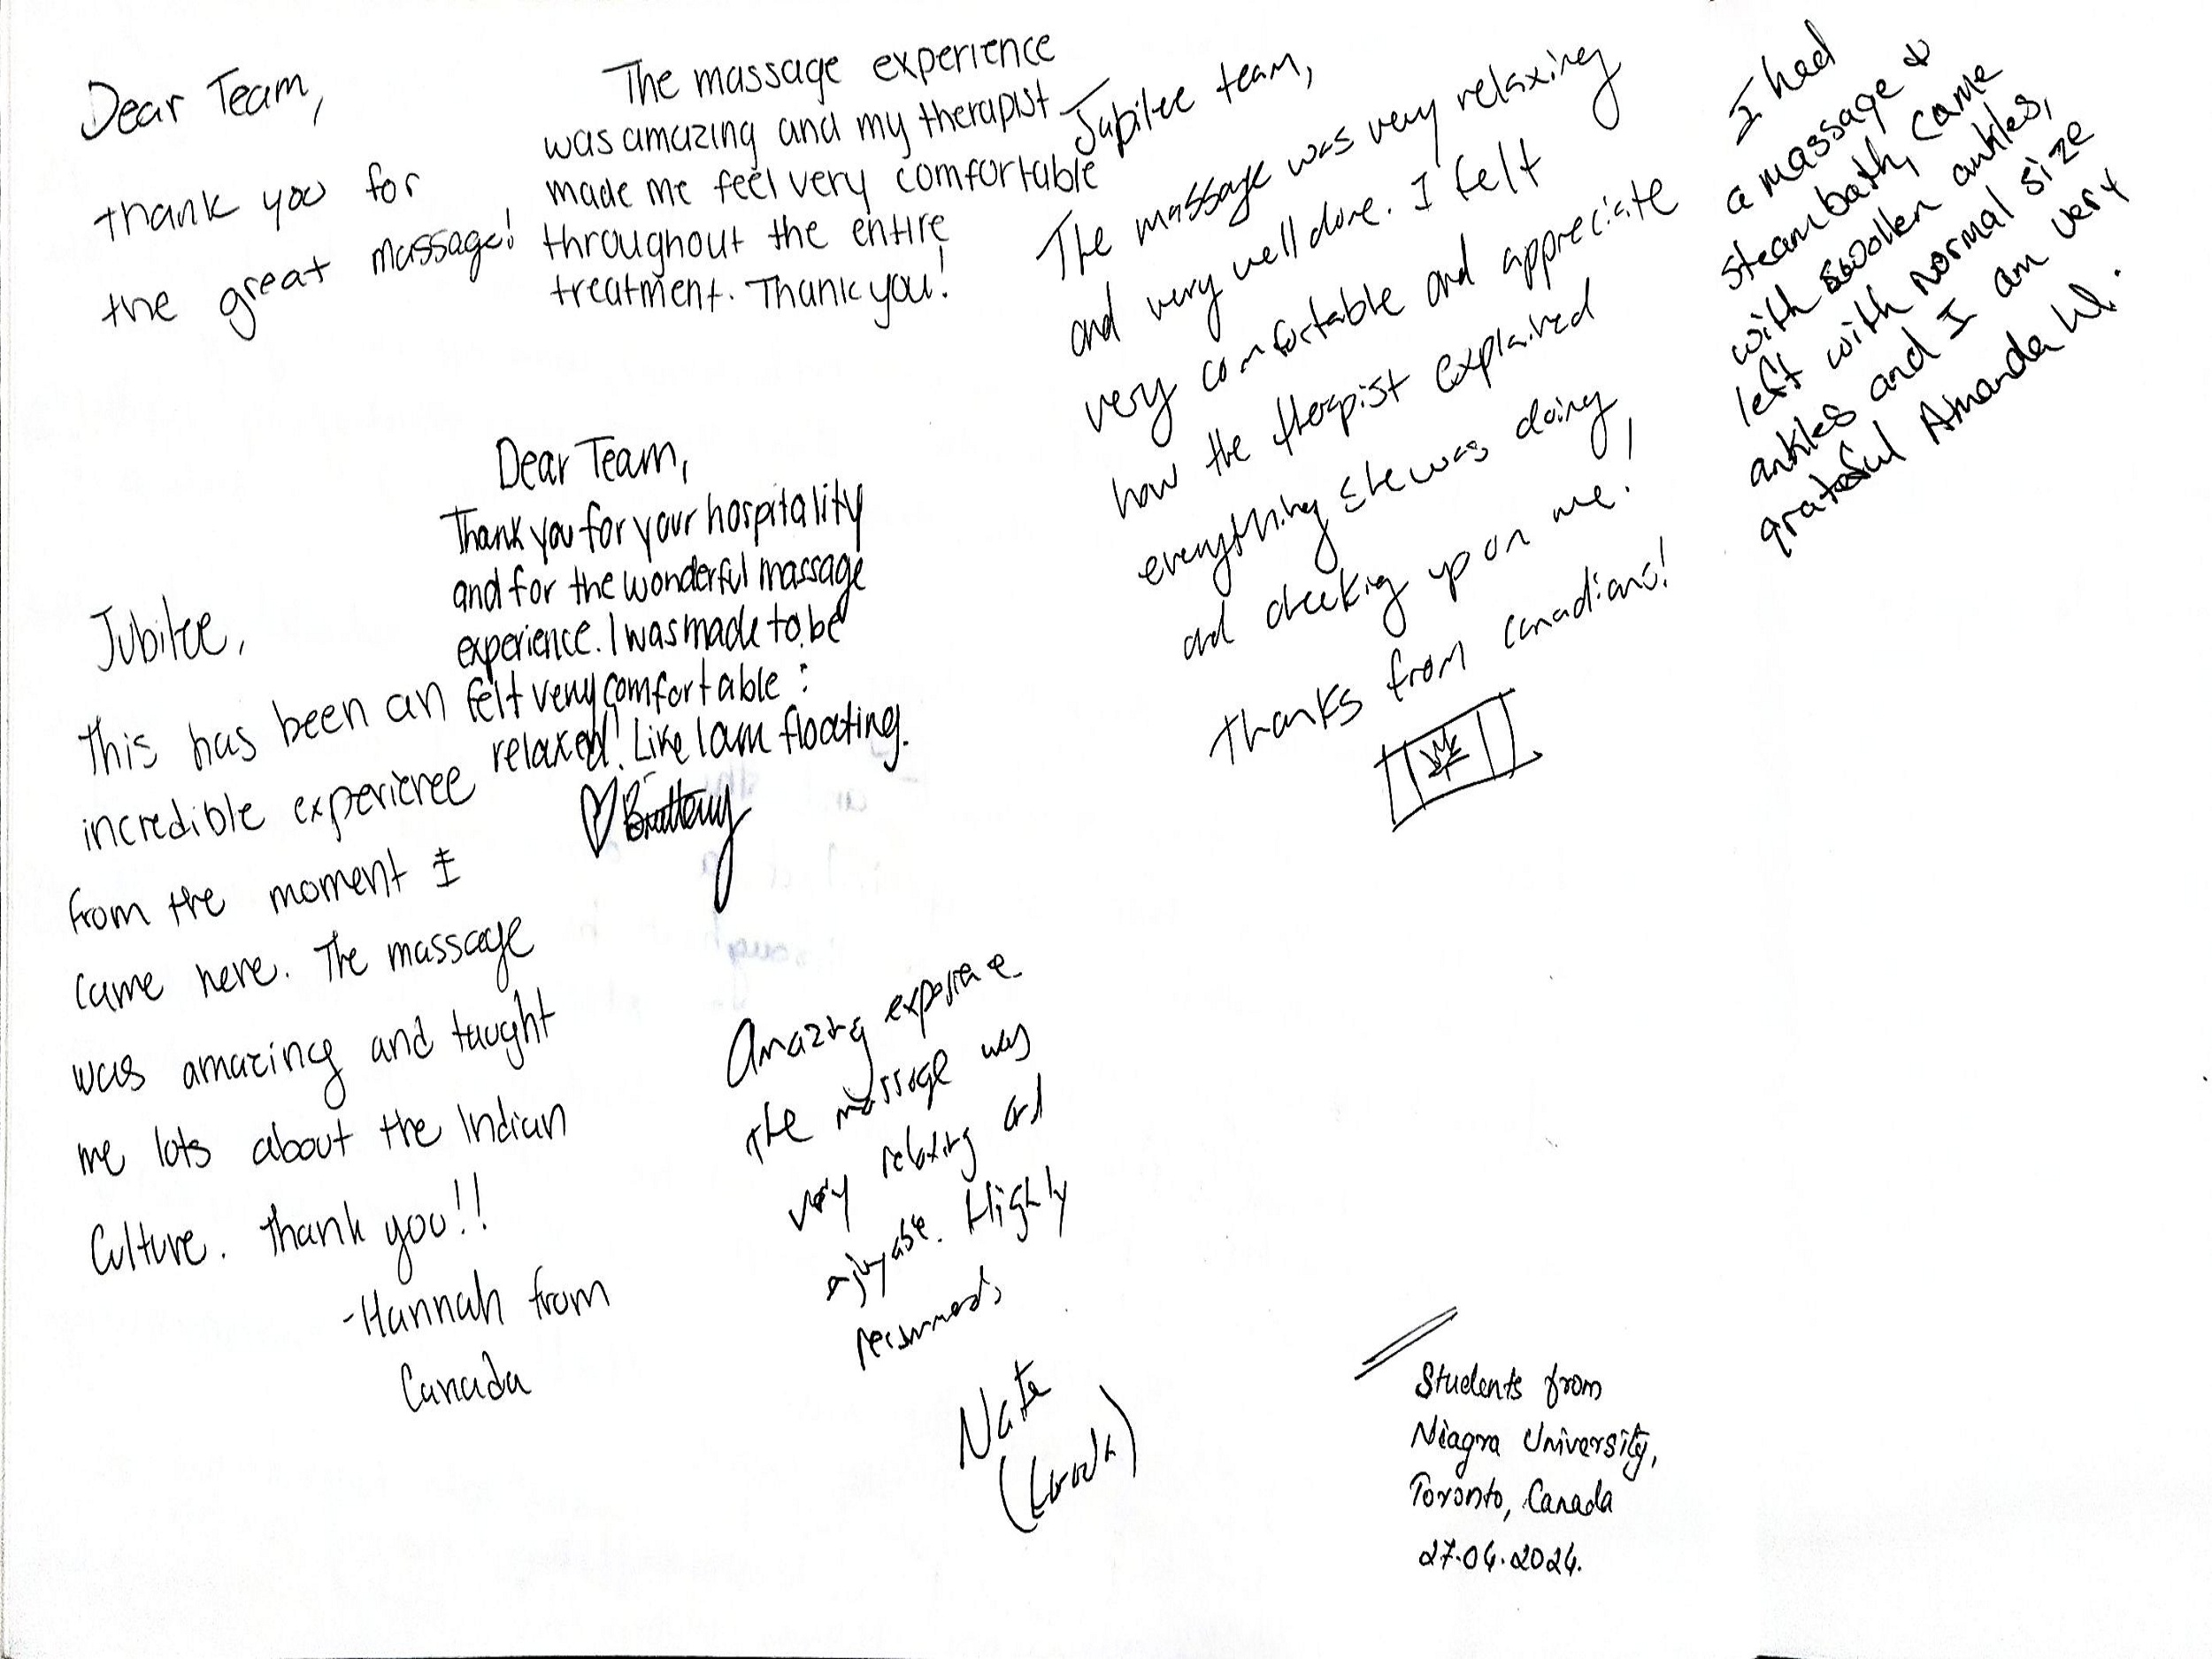 Dear Team,
thank you for
the great massage!
The massage experience
was amazing and my therapist
made me feel very comfortable
throughout the entire
treatment. Thank you!
Jubilee team,
The massage was very relaxing
and very well done. I felt
very comfortable and appreciate
how the therapist explained
everything she was doing,
and checking up on me!
Thanks from Canadians!
I had
a massage &
steambath, came
with swollen ankles,
left with normal size
ankles and I am very
grateful Amanda W.
Dear Team,
Thank you for your hospitality
and for the wonderful massage
experience. I was made to be
felt very comfortable :
relaxed! Like I am floating.
Brittany
Jubilee,
This has been an
incredible experience
from the moment I
came here. The massage
was amazing and taught
me lots about the Indian
Culture. Thank you!!
-Hannah from
Canada
Amazing experience
the massage was
very relaxing and
enjoyable. Highly
recommends
Nate
Students from
Niagra University,
Toronto, Canada
27.04.2024.